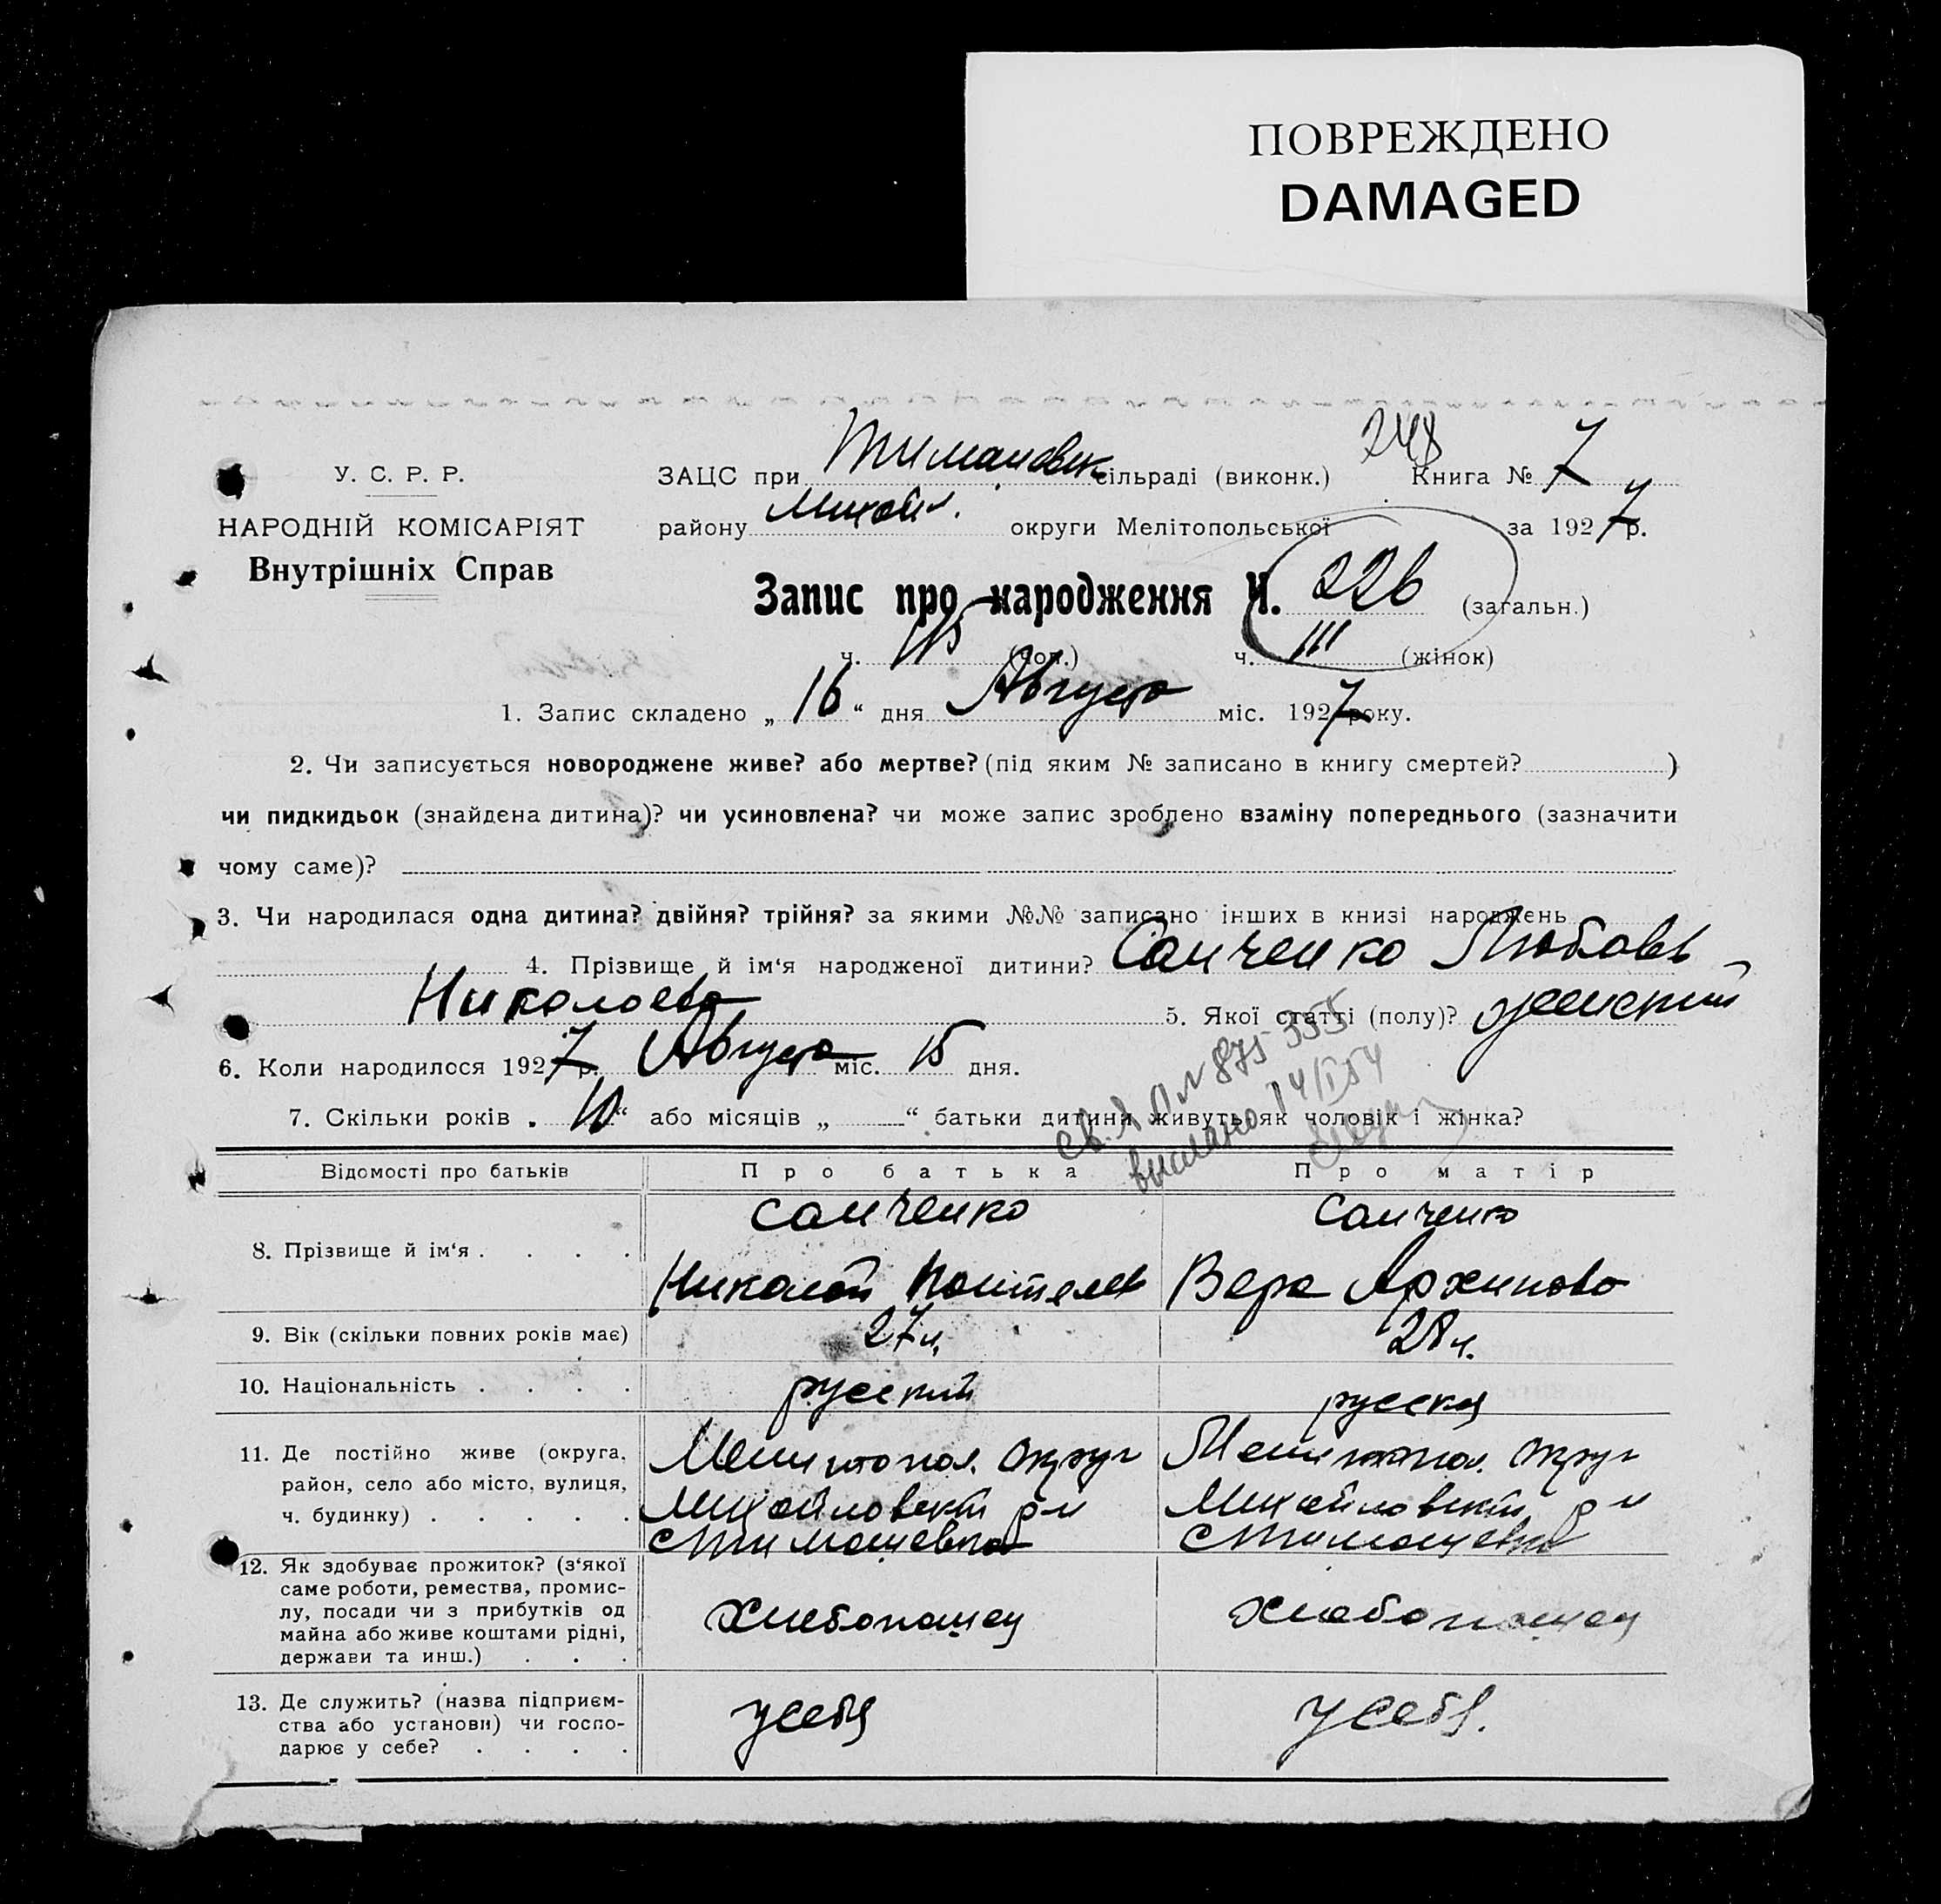 ПОВРЕЖДЕНО
DAMAGED
248
У. С. Р. Р.
НАРОДНІЙ КОМІСАРІЯТ
Внутрішніх Справ
ЗАЦС при Тимашовск сільраді (виконк.) Книга № 7
району Михайл. округи Мелітопольської за 1927 р.
Запис про народження Ч. 226 (загальн.)
ч. 115 (чол.) ч. 111 (жінок)
1. Запис складено „ 16 “ дня Августа міс. 1927 року.
2. Чи записується новороджене живе? або мертве? (під яким № записано в книгу смертей? )
чи пидкидьок (знайдена дитина)? чи усиновлена? чи може запис зроблено взаміну попереднього (зазначити
чому саме)?
3. Чи народилася одна дитина? двійня? трійня? за якими №№ записано інших в книзі народжень
4. Прізвище й ім‘я народженої дитини? Санченко Любовь
Николаева 5. Якої статті (полу)? женский
6. Коли народилося 1927 р. Августа міс. 15 дня.
7. Скільки років „ 10 “ або місяців „ “ батьки дитини живуть як чоловік і жінка?
№ 875355
выслано 14/I 54
Відомості про батьків Про батька Про матір
8. Прізвище й ім‘я . . . . Санченко Санченко
Николай Вера Архипова
9. Вік (скільки повних років має) 27 л. 28 л.
10. Національність . . . . русский русская
11. Де постійно живе (округа, район, село або місто, вулиця, ч. будинку) . . . . . Мелитопол. Округ Мелитопол. Округ
Михайловский р-н Михайловский р-н
с Тимашевка с Тимашевка
12. Як здобуває прожиток? (з‘якої саме роботи, ремества, промислу, посади чи з прибутків од майна або живе коштами рідні, держави та инш.) . . . Хлебопашец хлебопашец
13. Де служить? (назва підприємства або установи) чи господарює у себе? . . . . у себя у себя.